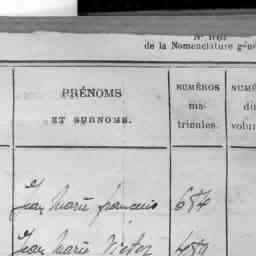 N° 1161
de la Nomenclature géné
PRÉNOMS
ET SURNOMS.
NUMÉROS
ma-
tricules.
NUMÉ
du
volum
Jean Marie francois 684
Jean Marie Victor